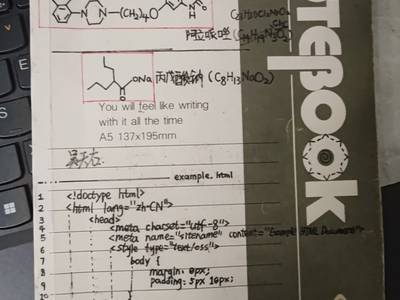 N—(CH₂)₄O
阿立哌唑
ONa 丙戊酸钠 (C₈H₁₃NaO₂)
O
You will feel like writing
with it all the time
A5 137x195mm
NOTEBOOK
example.html
1 <!doctype html>
2 <html lang="zh-CN">
3 <head>
4 <meta charset="utf-8">
5 <meta name="sitename" content="Example HTML Document">
6 <style type="text/css">
7 body {
8 margin: 0px;
9 padding: 5px 10px;
10 }